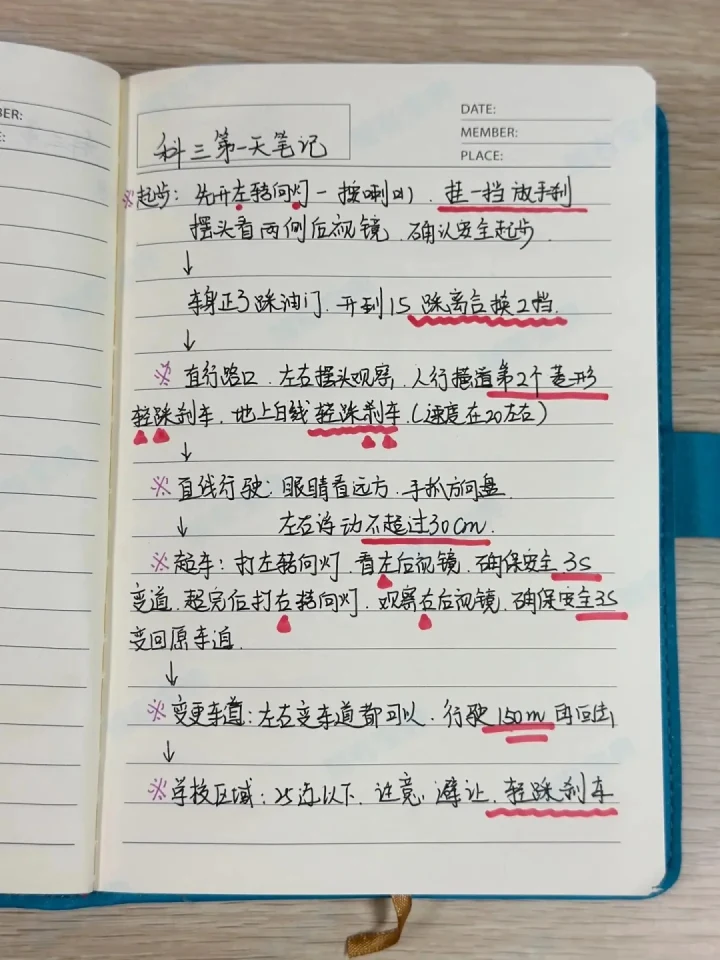 BER:
E:
DATE:
MEMBER:
PLACE:
科三第一天笔记
※起步：先开左转向灯－按喇叭）.挂一挡放手刹
摆头看两侧后视镜.确认安全起步.
↓
车身正了踩油门.开到15踩离合换2挡.
↓
※直行路口.左右摆头观察,人行横道第2个菱形
轻踩刹车.地上白线轻踩刹车.(速度在20左右)
↓
※直线行驶：眼睛看远方.手抓方向盘.
↓ 左右浮动不超过30cm.
※超车：打左转向灯.看左后视镜.确保安全3S
变道.超完后打右转向灯.观察右后视镜.确保安全3S
变回原车道.
↓
※变更车道：左右变车道都可以.行驶150m再回去,
↓
※学校区域：25迈以下.注意.避让.轻踩刹车